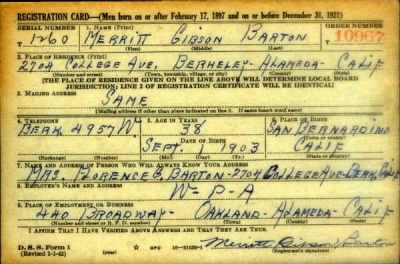 REGISTRATION CARD—(Men born on or after February 17, 1897 and on or before December 31, 1921)
SERIAL NUMBER 1. NAME (Print) ORDER NUMBER
1260 MERRITT GIBSON BARTON 10967
(First) (Middle) (Last)
2. PLACE OF RESIDENCE (Print)
2704 COLLEGE AVE, BERKELEY-ALAMEDA-CALIF
(Number and street) (Town, township, village, or city) (County) (State)
[THE PLACE OF RESIDENCE GIVEN ON THE LINE ABOVE WILL DETERMINE LOCAL BOARD
JURISDICTION; LINE 2 OF REGISTRATION CERTIFICATE WILL BE IDENTICAL]
3. MAILING ADDRESS
SAME
[Mailing address if other than place indicated on line 2. If same insert word same]
4. TELEPHONE 5. AGE IN YEARS 6. PLACE OF BIRTH
BERK 4957W 38 SAN BERNARDINO
DATE OF BIRTH (Town or county)
SEPT. 1903 CALIF
(Exchange) (Number) (Mo.) (Day) (Yr.) (State or country)
7. NAME AND ADDRESS OF PERSON WHO WILL ALWAYS KNOW YOUR ADDRESS
MRS. FLORENCE G BARTON-2704 COLLEGE AVE-BERK, CALIF
8. EMPLOYER'S NAME AND ADDRESS
W-P-A
9. PLACE OF EMPLOYMENT OR BUSINESS
440 BROADWAY- OAKLAND-ALAMEDA-CALIF
(Number and street or R. F. D. number) (Town) (County) (State)
I AFFIRM THAT I HAVE VERIFIED ABOVE ANSWERS AND THAT THEY ARE TRUE.
D. S. S. Form 1 GPO 16—21630-1 Merritt Gibson Barton
(Revised 1-1-42) (over) (Registrant's signature)